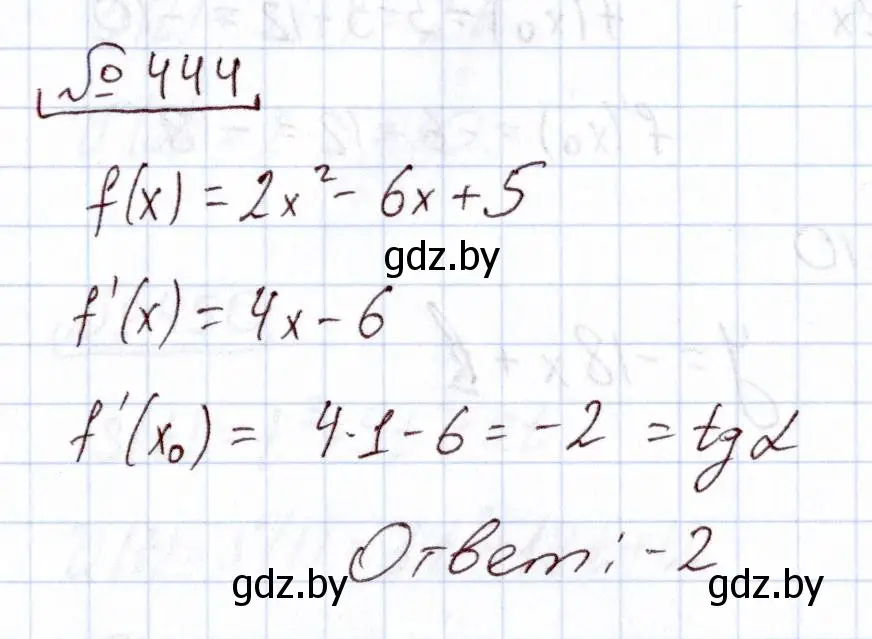 № 444
f(x) = 2x² - 6x + 5
gdz.by
f'(x) = 4x - 6
f'(x₀) = 4·1 - 6 = -2 = tg α
Ответ: -2
gdz.by gdz.by